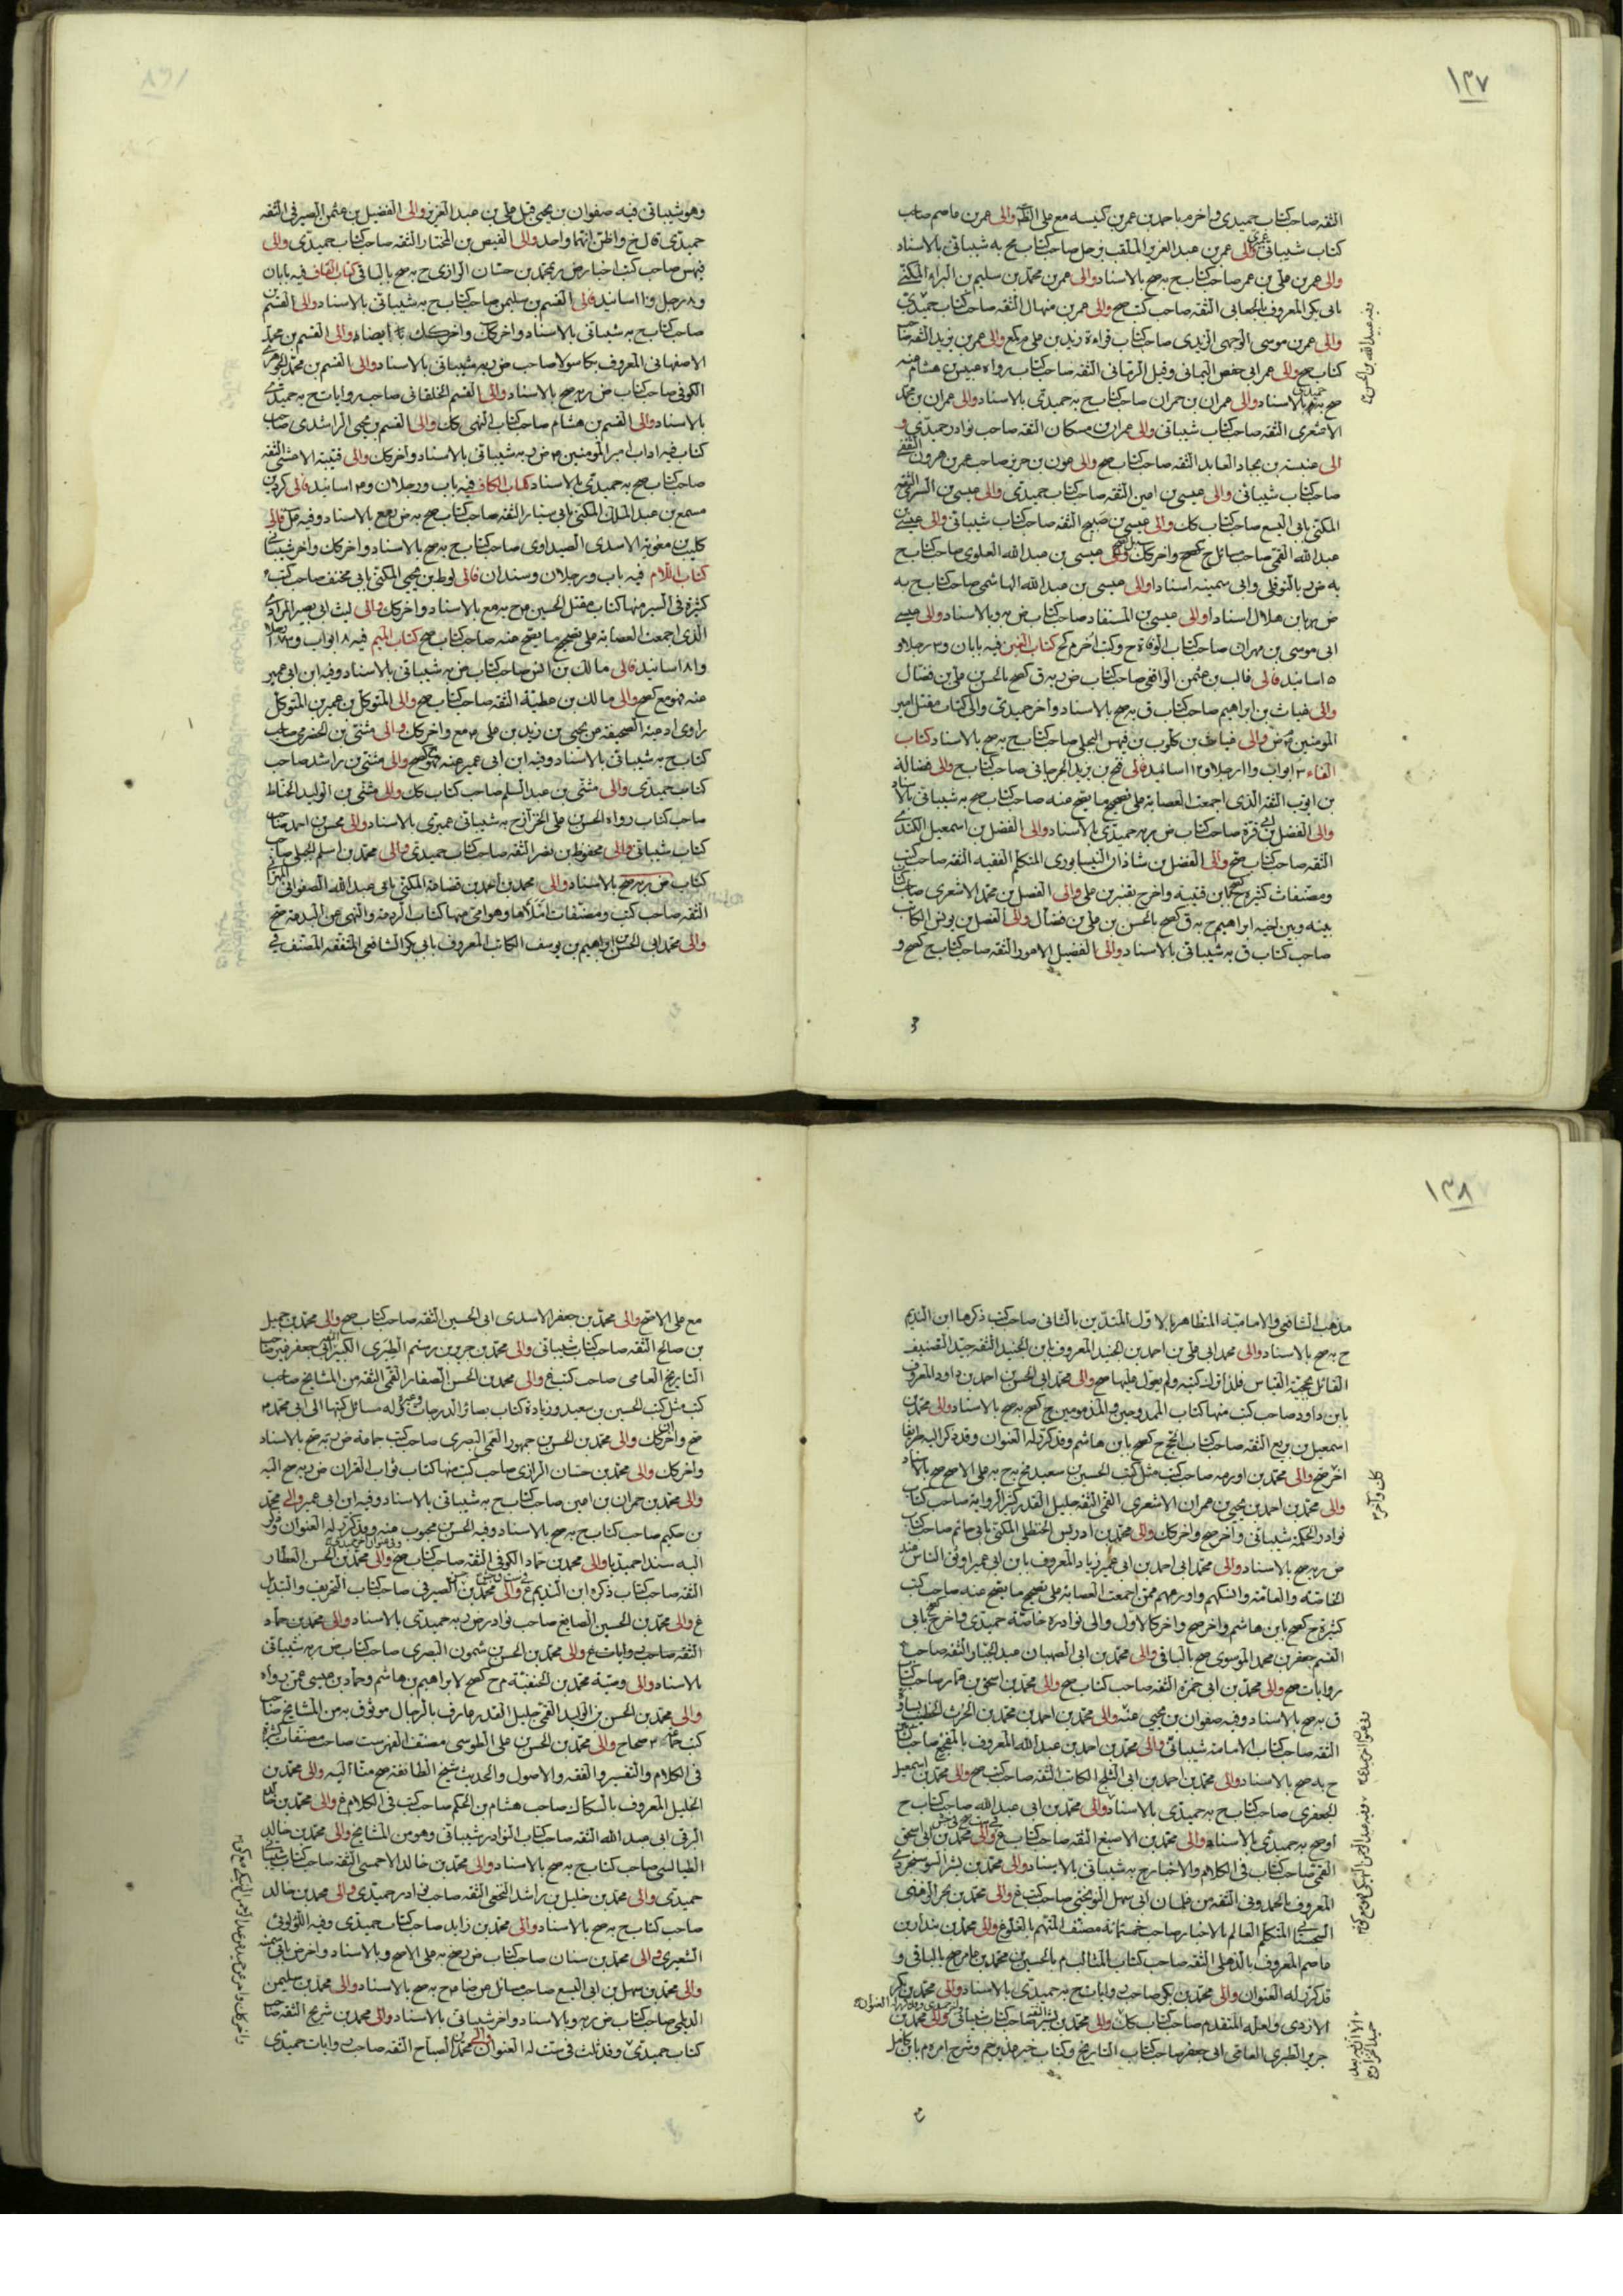 ١٣٧
الثقه صاحب كتاب حميدى واخر مه باحمد بن عمر بن كيسه مع على الظ والى عمر بن عاصم صاحب
كتاب شيبانى والى عمر بن عبد العزيز الملقب بزحل صاحب كتاب ح به شيبانى بالاسناد
والى عمر بن على بن عمر صاحب كتاب ح به صح بالاسناد والى عمر بن محمد بن سليم بن البراء المكنى
بابى بكر المعروف بالجعابى الثقه صاحب كتب صح والى عمر بن منهال الثقه صاحب كتاب حميدى
والى عمر بن موسى الوجهى الزيدى صاحب كتاب قراءة زيد بن على م كمع والى عمر بن يزيد الثقه صا
كتاب صح والى عمر ابى حفص الرمانى وقيل الزمانى الثقه صاحب كتاب رواه عبيس بن هشام منه
صح به بالاسناد والى عمران بن حمران صاحب كتاب ح به حميدى بالاسناد والى عمران بن محمد
الاشعرى الثقه صاحب كتاب شيبانى والى عمران بن مسكان الثقه صاحب نوادر حميدى و
الى عنبسة بن بجاد العابد الثقه صاحب كتاب صح والى عون بن جرير صاحب عمر بن هرون الثقفى
صاحب كتاب شيبانى والى عيسى بن اعين الثقه صاحب كتاب حميدى والى عيسى بن السرى الثقه
المكنى بابى اليسع صاحب كتاب كك والى عيسى بن صبيح الثقه صاحب كتاب شيبانى والى عيسى بن
عبد الله القمى صاحب مسائل ح كصح واخر كك والى عيسى بن عبد الله العلوى صاحب كتاب ح
به ض ر بالنوفلى وابى سمينه اسنادا والى عيسى بن عبد الله الهاشمى صاحب كتاب ح به
ض ر بابن هلال اسنادا والى عيسى بن المستفاد صاحب كتاب ض ر به وبالاسناد والى عيسى
ابى موسى بن مهران صاحب كتاب الوفاة ح وكتب اخر م كح كتاب الغين فيه بابان و٣ رجلا و
٥ اسانيد فالى غالب بن عثمن الواقفى صاحب كتاب ض ر به ق كصح بالحسن بن على بن فضال
والى غياث بن ابراهيم صاحب كتاب ق به صح بالاسناد واخر حميدى والى كتاب مقتل امير
المومنين م ض والى غياث بن كلوب بن فيهس البجلى صاحب كتاب ح به صح بالاسناد كتاب
الفاء ٣ ابواب و١١ رجلا و١٢ اسانيد فالى فتح بن يزيد الجرجانى صاحب كتاب ح والى فضالة
بن ايوب الثقه الذى اجمعت العصابة على تصحيح ما يصح منه صاحب كتاب صح به شيبانى بالاسناد
والى الفضل بن ابى قرة صاحب كتاب ض ر به حميدى بالاسناد والى الفضل بن اسمعيل الكندى
الثقه صاحب كتاب صح والى الفضل بن شاذان النيسابورى المتكلم الفقيه الثقه صاحب كتب
ومصنفات كثيرة كصح بابن قتيبة واخر ح بقنبر بن على والى الفضل بن محمد الاشعرى صاحب كتاب
بينه وبين اخيه ابراهيم ح به ق كصح بالحسن بن على بن فضال والى الفضل بن يونس الكاتب
صاحب كتاب ق به شيبانى بالاسناد والى الفضيل الاعور الثقه صاحب كتاب ح كصح و
وهو شيبانى فيه صفوان بن يحيى قبل على بن عبد العزيز والى الفضيل بن عثمن الصيرفى الثقه
حميدى قال خ واظن انهما واحد والى الفيض بن المختار الثقه صاحب كتاب حميدى والى
فيهس صاحب كتب اخبار ض ر بمحمد بن حسان الرازى ح به صح بالباقى كتاب القاف فيه بابان
و٨ رجل و١١ اسانيد فالى القسم بن سليمن صاحب كتاب ح به شيبانى بالاسناد والى القسم بن
صاحب كتاب ح به شيبانى بالاسناد واخر كك واخر كك ايضاء والى القسم بن محمد
الاصفهانى المعروف بكاسولا صاحب ض ر به شيبانى بالاسناد والى القسم بن محمد الجوهرى
الكوفى صاحب كتاب ض ر به صح بالاسناد والى القسم الخلقانى صاحب روايات ح به حميدى
بالاسناد والى القسم بن هشام صاحب كتاب النهى كك والى القسم بن يحيى الراشدى صاحب
كتاب فيه اداب امير المومنين م ض ر به شيبانى بالاسناد واخر كك والى قتيبة الاعشى الثقه
صاحب كتاب صح به حميدى بالاسناد كتاب الكاف فيه باب ورجلان و٣ اسانيد فالى كردين
مسمع بن عبد الملك المكنى بابى سيار الثقه صاحب كتاب صح به ض ر مع بالاسناد وفيه كك فالى
كليب بن معوية الاسدى الصيداوى صاحب كتاب ح به صح بالاسناد واخر كك واخر شيبانى
كتاب اللام فيه باب ورجلان وسندان فالى لوط بن يحيى المكنى بابى مخنف صاحب كتب
كثيرة فى السير منها كتاب مقتل الحسين م ح به مع بالاسناد واخر كك والى ليث ابى بصير المرادى
الذى اجمعت العصابة على تصحيح ما يصح عنه صاحب كتاب صح كتاب الميم فيه ٨ ابواب و رجلا
و١٨ اسانيد فالى مالك بن انس صاحب كتاب ض به شيبانى بالاسناد وفيه ابن ابى عمير
عنه فهو مع كصح والى مالك بن عطية الثقه صاحب كتاب صح والى المتوكل بن عمير بن المتوكل
راوى ادعية الصحيفة عن يحيى بن زيد بن على م مع واخر كك والى مثنى بن الحضرمى صاحب
كتاب ح به شيبانى بالاسناد وفيه ابن ابى عمير عنه فهو كصح والى مثنى بن راشد صاحب
كتاب حميدى والى مثنى بن عبد السلم صاحب كتاب كك والى مثنى بن الوليد الحناط
صاحب كتاب رواه الحسن بن على الخزاز ح به شيبانى عميرى بالاسناد والى محسن بن احمد صاحب
كتاب شيبانى والى محفوظ بن نصر الثقه صاحب كتاب حميدى والى محمد بن اسلم الجبلى صاحب
كتاب ض ر به صح بالاسناد والى محمد بن احمد بن قضاعة المكنى بابى عبد الله الصفوانى
الثقه صاحب كتب ومصنفات املأها وهو امى منها كتاب الرد عنه والنهى عن البدعة صح
والى محمد ابى الحسن بن ابراهيم بن يوسف الكاتب المعروف بابى بكر الشافعى المتفقه المصنف فى
١٣٨
مذهب الشافعى والامامية المتظاهر بالاول المتدين بالثانى صاحب كتب ذكرها ابن النديم
ح به صح بالاسناد والى محمد ابى على بن احمد بن الجنيد المعروف بابن الجنيد الثقه جيد التصنيف
القائل بحجية القياس فلذا ترك كتبه ولم يعول عليها صح والى محمد ابى الحسن بن احمد بن داود المعروف
بابن داود صاحب كتب منها كتاب الممدوحين والمذمومين ح كصح به صح بالاسناد والى محمد بن
اسمعيل بن بزيع الثقه صاحب كتاب الحج ح كصح بابن هاشم وقد ذكر له العنوان وقد ذكر اليه طريقا
اخر صح والى محمد بن اورمه صاحب كتب مثل كتب الحسين بن سعيد صح ح به على الاصح صح بالاسناد
والى محمد بن احمد بن يحيى بن عمران الاشعرى القمى الثقه جليل القدر كثير الرواية صاحب كتاب
نوادر الحكمة شيبانى واخر صح واخر كك والى محمد بن ادريس الحنظلى المكنى بابى حاتم صاحب كتاب
ض ر به صح بالاسناد والى محمد ابى احمد بن ابى عمير زياد المعروف بابن ابى عمير اوثق الناس عند
الخاصة والعامة وانسكهم واورعهم ممن اجمعت العصابة على تصحيح ما يصح عنه صاحب كتب
كثيرة ح كصح بابن هاشم واخر صح واخر كالاول والى نوادره خاصة حميدى واخر ح بابى
القسم جعفر بن محمد الموسوى صح بالباقى والى محمد بن ابى الصهبان عبد الجبار الثقه صاحب
روايات صح والى محمد بن ابى حمزة الثقه صاحب كتاب صح والى محمد بن اسحق بن عمار صاحب كتاب
ق به صح بالاسناد وفيه صفوان بن يحيى عنه والى محمد بن احمد بن محمد بن الحرث الخطيب بساوة
الثقه صاحب كتاب الامامة شيبانى والى محمد بن احمد بن عبد الله المعروف بالمفجع صاحب
ح به صح بالاسناد والى محمد بن احمد بن ابى الثلج الكاتب الثقه صاحب كتب صح والى محمد بن اسمعيل
الجعفرى صاحب كتاب ح به حميدى بالاسناد والى محمد بن ابى عبد الله صاحب كتاب ح
او صح به حميدى بالاسناد والى محمد بن الاصبغ الثقه صاحب كتاب ع والى محمد بن ابى اسحق
القمى صاحب كتاب فى الكلام والاخبار ح به شيبانى بالاسناد والى محمد بن بشر السوسنجردى
المعروف بالحمدونى الثقه من غلمان ابى سهل النوبختى صاحب كتب ع والى محمد بن بحر الرهنى
المتكلم العالم بالاخبار صاحب خمسمائة مصنف المتهم بالغلو ع والى محمد بن بندار بن
عاصم المعروف بالذهلى الثقه صاحب كتاب المثالب م بالحسين بن محمد بن عامر صح بالباقى و
قد ذكر له العنوان والى محمد بن بكر صاحب روايات ح به حميدى بالاسناد والى محمد بن بكر
الازدى ولعله المتقدم صاحب كتاب كك والى محمد بن الثقه صاحب كتاب شيبانى والى محمد بن
جرير الطبرى العامى ابى جعفر صاحب كتاب التاريخ وكتاب خبر غدير خم وشرح امره م بابن كامل
مع على الاصح والى محمد بن جعفر الاسدى ابى الحسين الثقه صاحب كتاب صح والى محمد بن جميل
بن صالح الثقه صاحب كتاب شيبانى والى محمد بن جرير بن رستم الطبرى الكبير ابى جعفر غير صاحب
التاريخ العامى صاحب كتب ع والى محمد بن الحسن الصفار القمى الثقه من المشايخ صاحب
كتب مثل كتب الحسين بن سعيد وزيادة كتاب بصائر الدرجات وغيره وله مسائل كتبها الى ابى محمد م
صح واخر كك والى محمد بن الحسن بن جمهور العمى البصرى صاحب كتب جماعة ض ر به صح بالاسناد
واخر كك والى محمد بن حسان الرازى صاحب كتب منها كتاب ثواب القران ض ر به صح اليه
والى محمد بن حمران بن اعين صاحب كتاب ح به شيبانى بالاسناد وفيه ابن ابى عمير والى محمد
بن حكيم صاحب كتاب ح به صح بالاسناد وفيه الحسن بن محبوب عنه وقد ذكر له العنوان وذكر
اليه سندا حميديا والى محمد بن حماد الكوفى الثقه صاحب كتاب صح والى محمد بن الحسن العطار
الثقه صاحب كتاب ذكره ابن النديم ع والى محمد بن الحسن الصيرفى صاحب كتاب التحريف والتبديل
ع والى محمد بن الحسين الصايغ صاحب نوادر ض ر به حميدى بالاسناد والى محمد بن حماد
الثقه صاحب روايات ع والى محمد بن الحسن بن شمون البصرى صاحب كتاب ض ر به شيبانى
بالاسناد والى وصية محمد بن الحنفية م ح كصح لابراهيم بن هاشم وحماد بن عيسى عمن رواه
والى محمد بن الحسن بن الوليد القمى جليل القدر عارف بالرجال موثوق به من المشايخ صاحب
كتب جماعة ٣ صحاح والى محمد بن الحسن بن على الطوسى مصنف الفهرست صاحب مصنفات كثيرة
فى الكلام والتفسير والفقه والاصول والحديث شيخ الطائفة صح منا اليه والى محمد بن
الخليل المعروف بالسكاك صاحب هشام بن الحكم صاحب كتب فى الكلام ع والى محمد بن خالد
البرقى ابى عبد الله الثقه صاحب كتاب النوادر شيبانى وهو من المشايخ والى محمد بن خالد
الطيالسى صاحب كتاب ح به صح بالاسناد والى محمد بن خالد الاحمسى الثقه صاحب كتاب شيبانى
حميدى والى محمد بن خليل بن راشد النخعى الثقه صاحب نوادر حميدى والى محمد بن خالد
صاحب كتاب ح به صح بالاسناد والى محمد بن زايد صاحب كتاب حميدى وفيه اللؤلوئى
الشعيرى والى محمد بن سنان صاحب كتاب ض ر صح به على الاصح وبالاسناد واخر ض بابى سمينه
والى محمد بن سهل بن ابى اليسع صاحب مسائل عن ضا م ح به صح بالاسناد والى محمد بن سليمن
الديلمى صاحب كتاب ض ر به وبالاسناد واخر شيبانى بالاسناد والى محمد بن شريح الثقه صاحب
كتاب حميدى وقد ثلث فى ست له العنوان والى محمد بن الصباح الثقه صاحب روايات حميدى